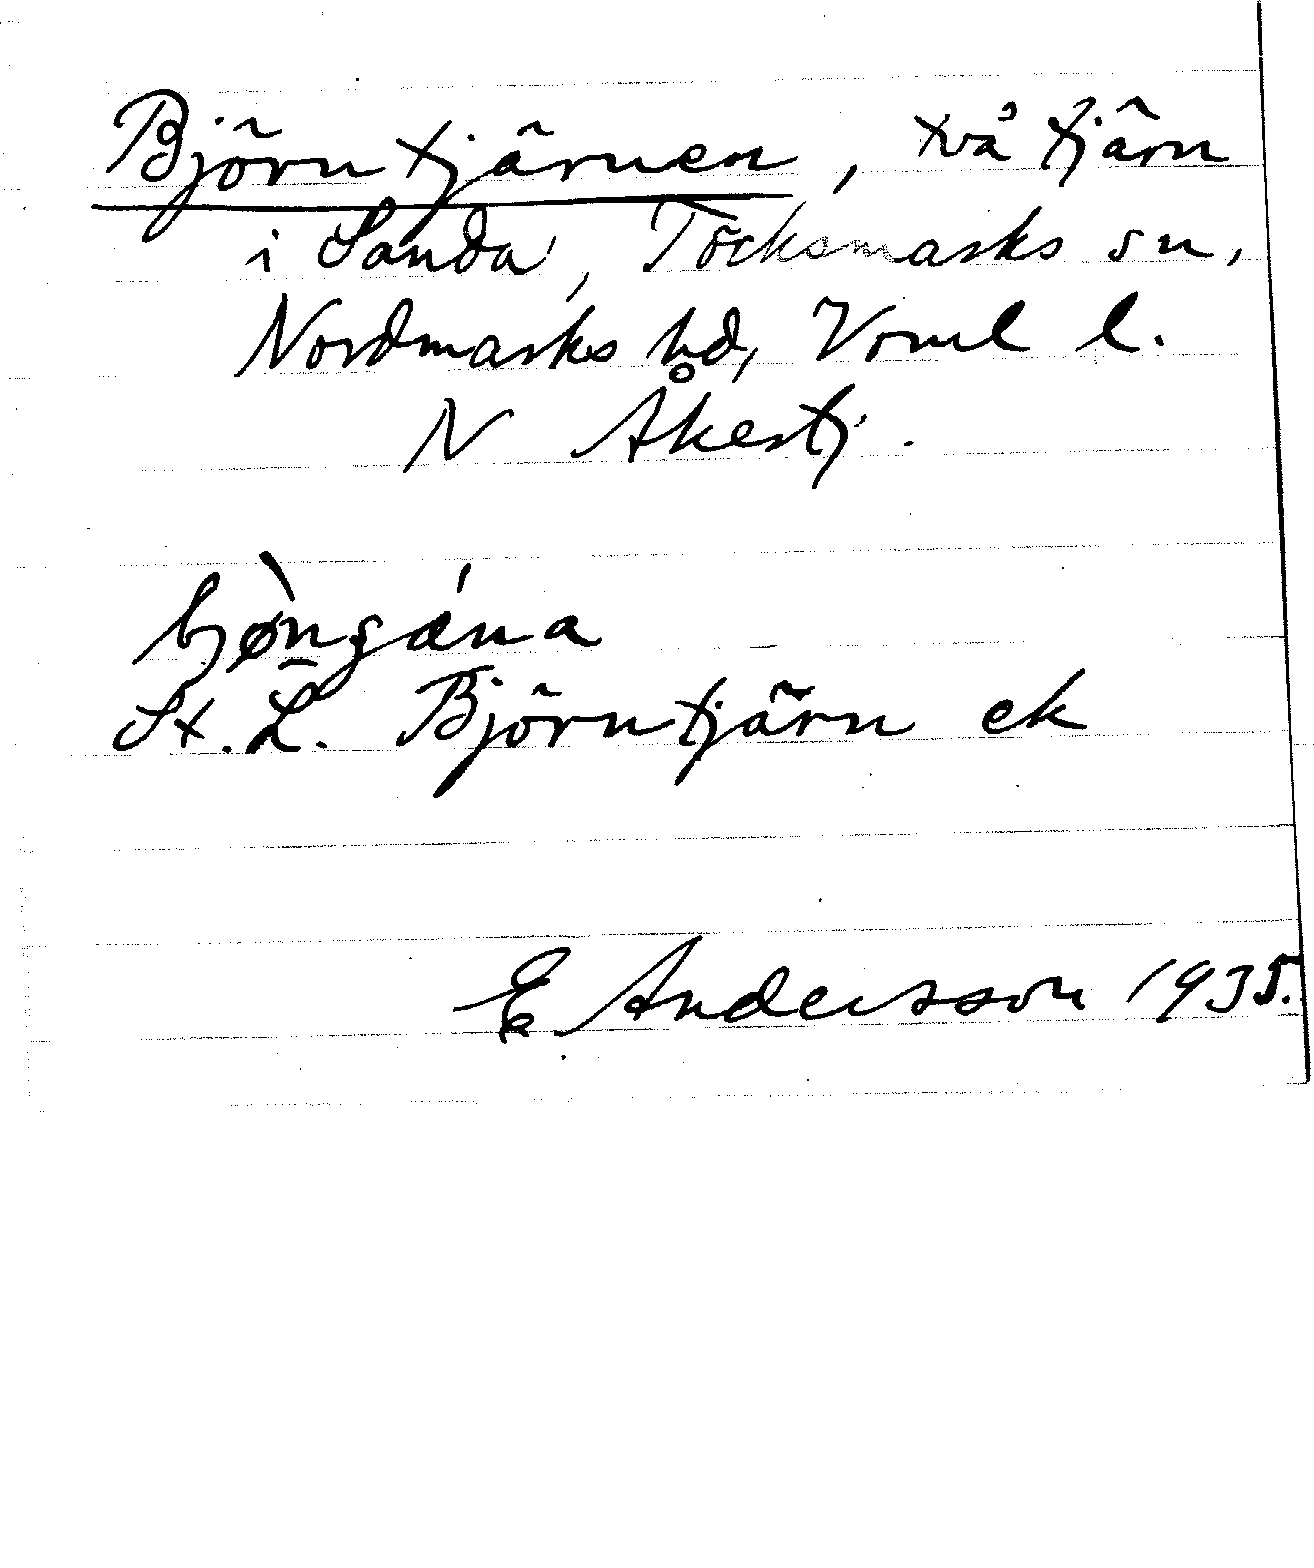 Björntjärnen, två tjärn
i Sanda, Töcksmarks sn,
Nordmarks hd, Vrml l.
N Åkestj.
bjø̀ngǽna
St. L. Björntjärn ek
E Andersson 1935.